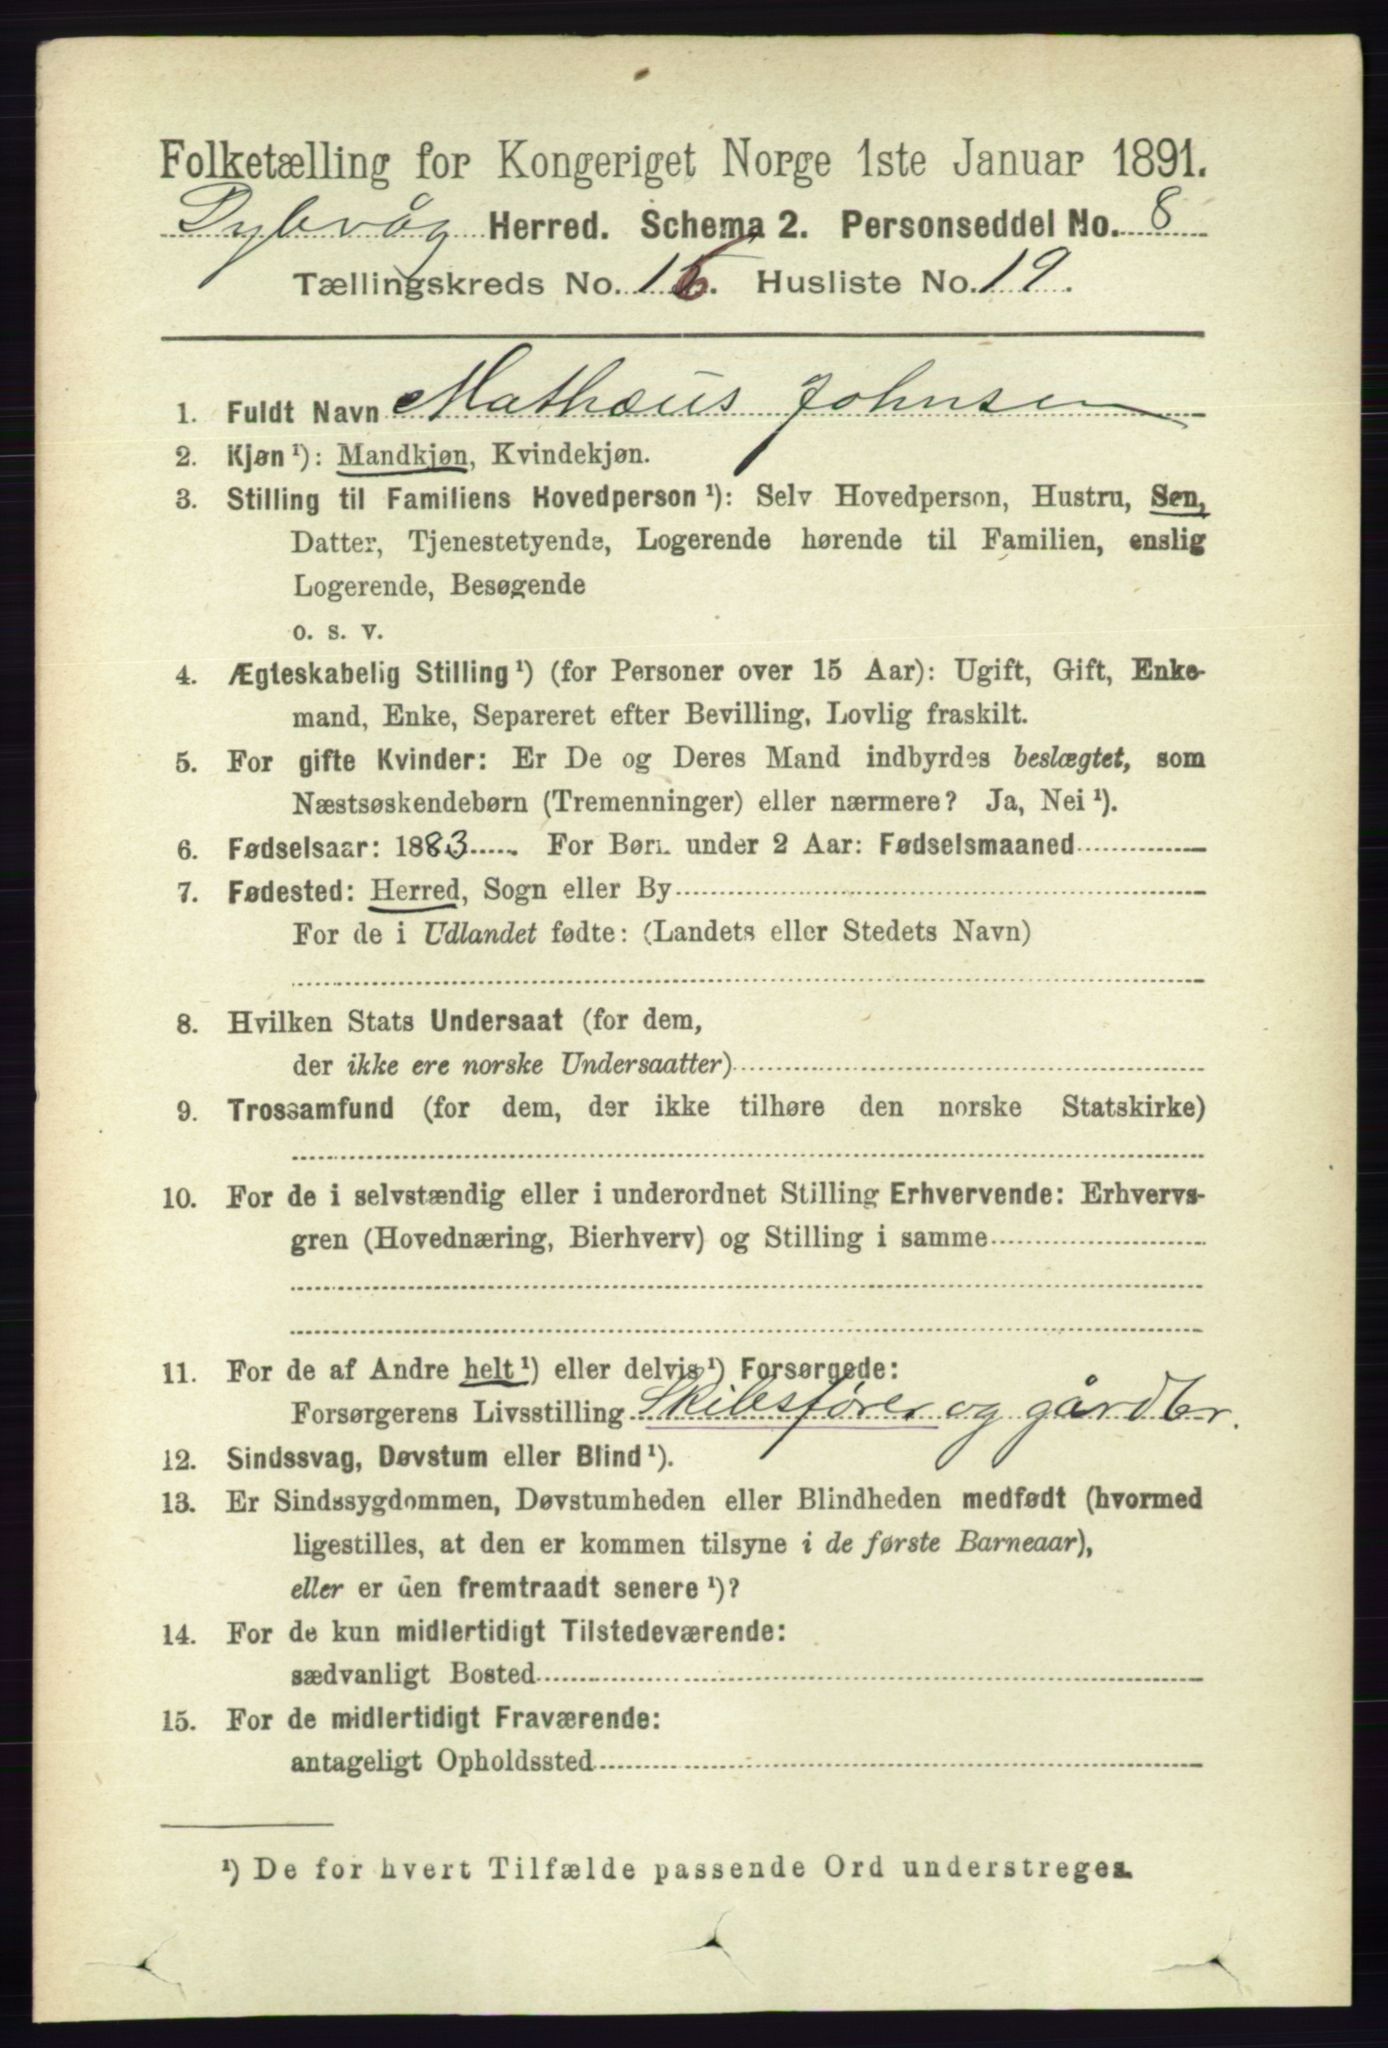 Folketælling for Kongeriget Norge 1ste Januar 1891.
Dybvåg Herred. Schema 2. Personseddel No. 8
Tællingskreds No. 16. Husliste No. 19.
1. Fuldt Navn Mathæus Johnsen
2. Kjøn ¹): Mandkjøn, Kvindekjøn.
3. Stilling til Familiens Hovedperson ¹): Selv Hovedperson, Hustru, Søn,
Datter, Tjenestetyende, Logerende hørende til Familien, enslig
Logerende, Besøgende
o. s. v.
4. Ægteskabelig Stilling ¹) (for Personer over 15 Aar): Ugift, Gift, Enke-
mand, Enke, Separeret efter Bevilling, Lovlig fraskilt.
5. For gifte Kvinder: Er De og Deres Mand indbyrdes beslægtet, som
Næstsøskendebørn (Tremenninger) eller nærmere? Ja, Nei ¹).
6. Fødselsaar: 1883 For Børn under 2 Aar: Fødselsmaaned
7. Fødested: Herred, Sogn eller By
For de i Udlandet fødte: (Landets eller Stedets Navn)
8. Hvilken Stats Undersaat (for dem,
der ikke ere norske Undersaatter)
9. Trossamfund (for dem, der ikke tilhøre den norske Statskirke)
10. For de i selvstændig eller i underordnet Stilling Erhvervende: Erhvervs-
gren (Hovednæring, Bierhverv) og Stilling i samme
11. For de af Andre helt ¹) eller delvis ¹) Forsørgede:
Forsørgerens Livsstilling Skibsfører og gårdbr.
12. Sindssvag, Døvstum eller Blind ¹).
13. Er Sindssygdommen, Døvstumheden eller Blindheden medfødt (hvormed
ligestilles, at den er kommen tilsyne i de første Barneaar),
eller er den fremtraadt senere ¹)?
14. For de kun midlertidigt Tilstedeværende:
sædvanligt Bosted
15. For de midlertidigt Fraværende:
antageligt Opholdssted
¹) De for hvert Tilfælde passende Ord understreges.